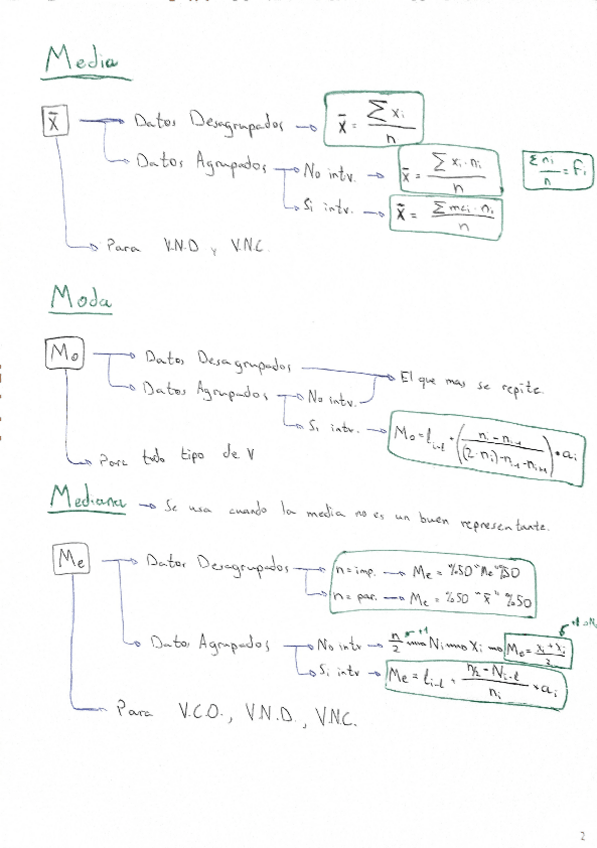 Media
x̄ → Datos Desagrupados → x̄ = Σ xi / n
→ Datos Agrupados → No intv. → x̄ = Σ xi · ni / n
Σ ni / n = Fi
→ Si intv. → x̄ = Σ mci · ni / n
→ Para V.N.D y V.N.C.
Moda
Mo → Datos Desagrupados → El que mas se repite.
→ Datos Agrupados → No intv.
→ Si intv. → Mo = li-1 + (ni - ni-1 / (2·ni) - ni-1 - ni+1) · ai
→ Para todo tipo de V
Mediana → Se usa cuando la media no es un buen representante.
Me → Datos Desagrupados → n = imp. → Me = %50 "Me" %50
→ n = par. → Me = %50 "x̄" %50
→ Datos Agrupados → No intv → n/2 → Ni → Xi → Me =
→ Si intv → Me = li-1 + n/2 - Ni-1 / ni · ai
→ Para V.C.O., V.N.D., V.N.C.
2